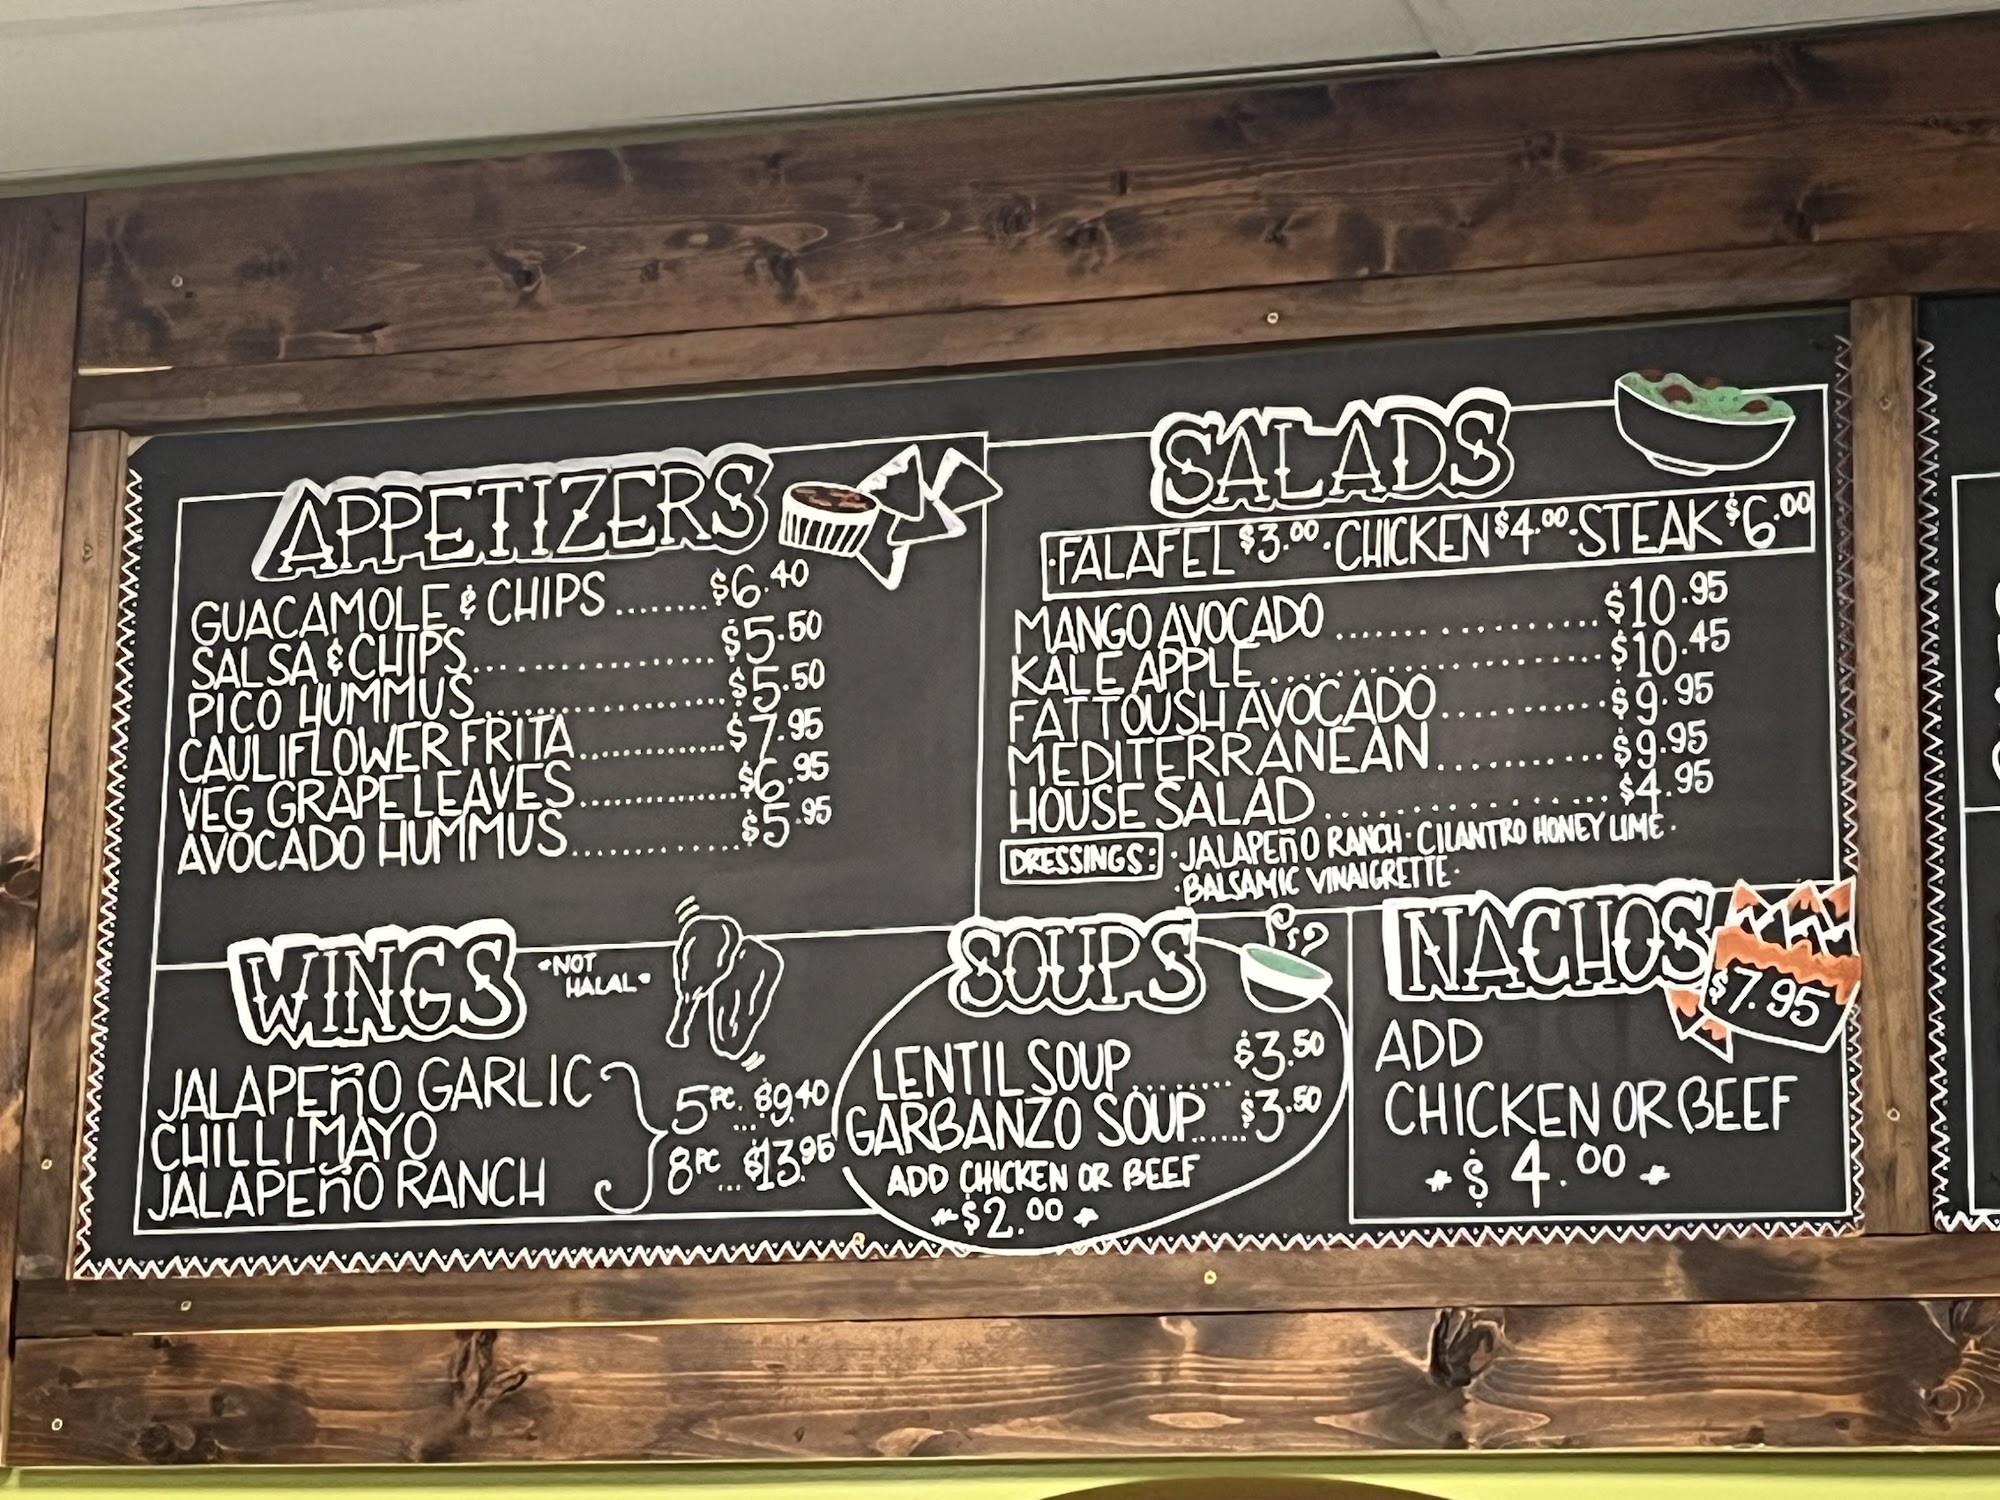 APPETIZERS
GUACAMOLE & CHIPS........$6.40
SALSA & CHIPS..................$5.50
PICO HUMMUS....................$5.50
CAULIFLOWER FRITA.............$7.95
VEG GRAPE LEAVES..............$6.95
AVOCADO HUMMUS..............$5.95
SALADS
·FALAFEL $3.00·CHICKEN $4.00·STEAK $6.00
MANGO AVOCADO....................$10.95
KALE APPLE..........................$10.45
FATTOUSH AVOCADO.............$9.95
MEDITERRANEAN.............$9.95
HOUSE SALAD.....................$4.95
DRESSINGS: ·JALAPEñO RANCH·CILANTRO HONEY LIME·
·BALSAMIC VINAIGRETTE·
WINGS
*NOT
HALAL*
JALAPEñO GARLIC
CHILLI MAYO
JALAPEñO RANCH
5PC....$9.40
8PC...$13.95
SOUPS
LENTIL SOUP........$3.50
GARBANZO SOUP......$3.50
ADD CHICKEN OR BEEF
*$2.00*
NACHOS
$7.95
ADD
CHICKEN OR BEEF
*$4.00*